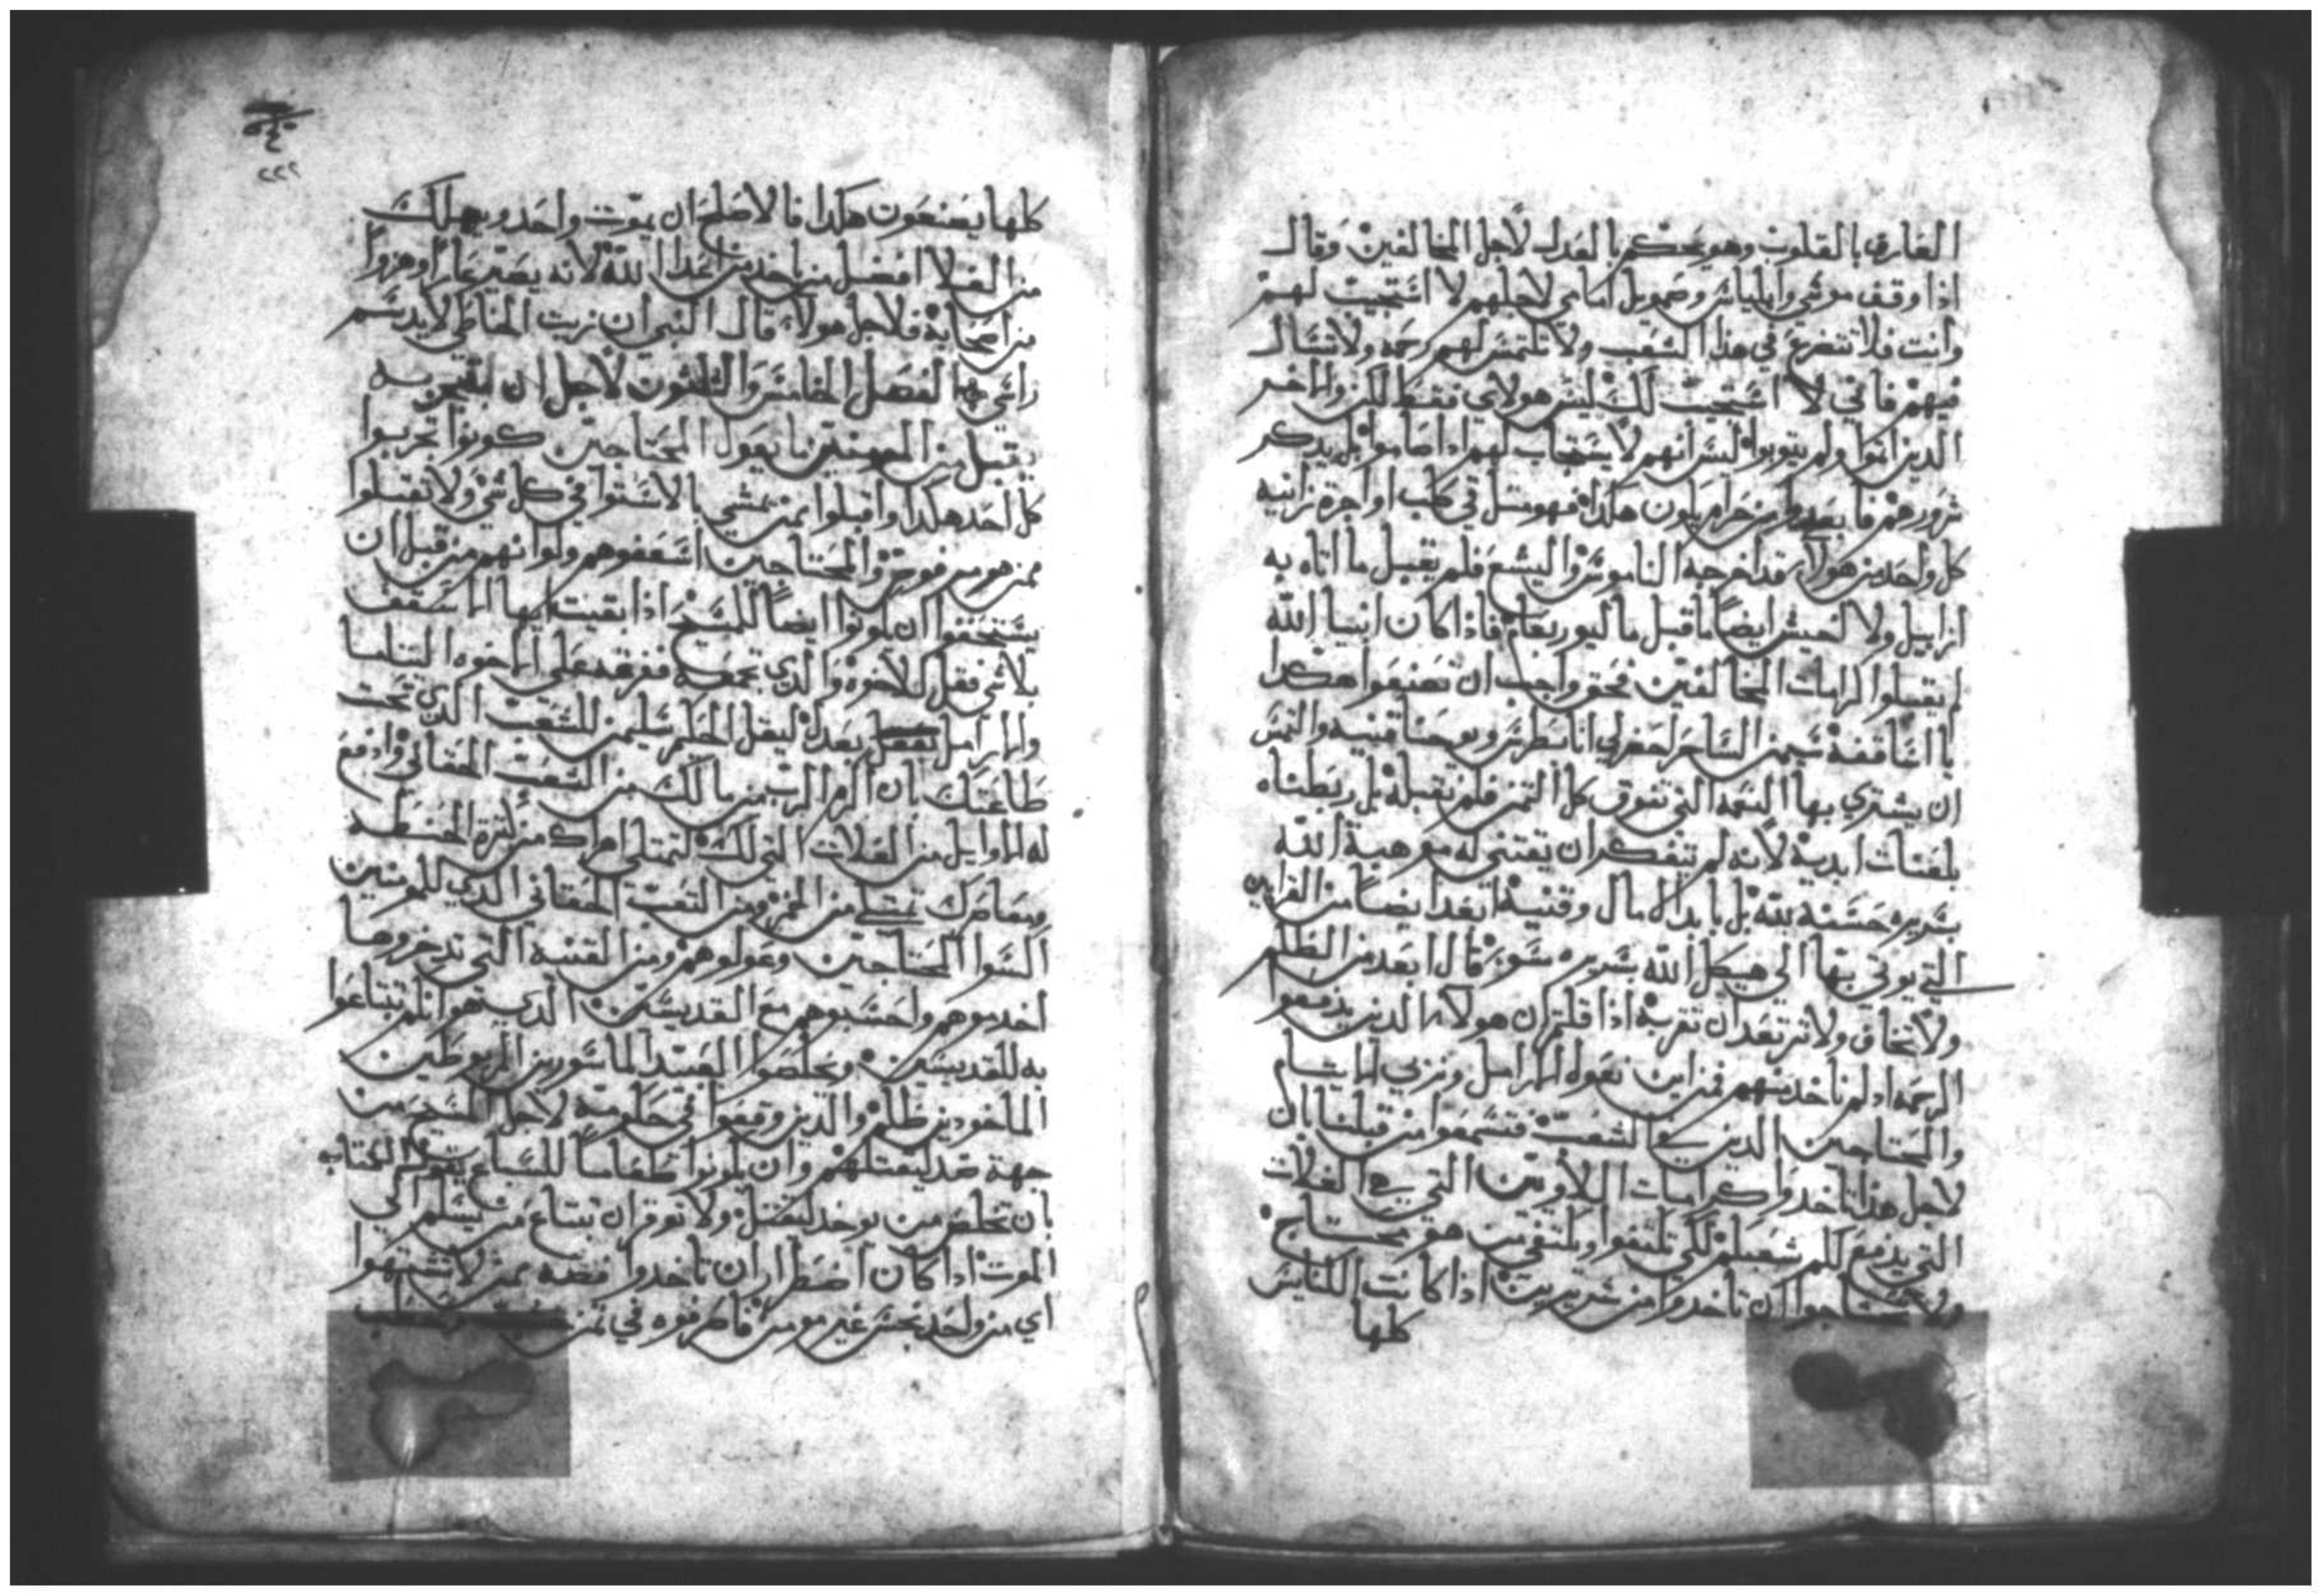 العارف بالقلوب وهو يحكم بالعدل لاجل المخالفين وقال
اذا وقف موسي وايلياس وصمويل امامي لاجلهم لا استجيب لهم
وانت فلا تتضرع في هذا الشعب ولا تلتمس لهم رحمه ولا تسال
فيهم فاني لا استجيب لك ليس هولاي فقط لكن والاخر
الدين اتموا ولم يتوبوا ليس انهم لا يستجاب لهم اداصاموا بل يدكر
شرورهم فا بعد من حرام يكون هكدا فهو مثل قي كلب او اجرة زانيه
كل واحد من هولاء قد اخرجه الناموس واليشع فلم يقبل ما اتاه به
ازابيل ولا احيش ايضا ما قبل ما ليوربعام فاذا كان انبيا الله
لم يقبلوا كرامات المخالفين فحق واجب ان تصنعوا هكدا
يا اساقفة سيمن الساحر احضر لي انا بطرس ويوحنا قنيه والتمس
ان يشتري بها النعمه التي تفوق كل الثمن فلم نقبله بل ربطناه
بلعنات ابدية لانه لم يتفكر ان يقتني له موهبة الله
بسريره حسنة لله بل بابدال مال وقنية ابعدا ايضا من القرابين
التي يوتي بها الي هيكل الله بسريره سوء قال ابعد من الظلم
ولا تخاف ولا ترتعد ان تقربه اذا قلتم ان هولاء الدين يدفعوا
الرحمه اد لم ناخد منهم فمن اين نعول الارامل ونربي الايتام
والمحتاجين الدين في الشعب فتسمعوا من قبلنا بان
لاجل هذا تاخدوا كرامات اللاويين التي هي الغلات
التي يدفع لكم شعبكم لكي تكتفوا ويكتفي من هو محتاج
ولا تحتاجوا ان تاخدوا من شريرين اذا كانت الكنايس
كلها
٢٢٢
كلها يصنعون هكدا فالاصلح ان يموت واحد ويهلك
من الغلا افضل من ياخد من اعدا الله لانه يصير عارا وهزوا
من اصحابه فلاجل هولاء قال النبي ان زيت الخاطي لا يدسم
راسي الفصل الخامس والثلثون لاجل ان يمتحن
يقبل من المومنين ما يعول المحتاجين كونوا تجربوا
كل احد هكدا واقبلوا ممن يمشي بالاستوا في كل شي ولا تقبلوا
ممن هو مرفوض والمحتاجين اسعفوهم ولو انهم من قبل ان
يستحقوا ان يكونوا ايضا للمسيح اذا بقيت ايها الاسقف
بلا شي فقل للاخوه والدي تجمعه ففرقه علي الاخوه اليتاما
والارامل بعدل ليقل الحكيم سليمن للشعب الدي تحت
طاعتك بان اكرم الرب من مالك من التعب الحقاني وادفع
له الاوايل من الغلات التي لك لتمتلي اهراك من كثرة الحنطه
ومعاصرك تمتلي من الخمر ومن التعب الحقاني الدي للمومنين
اكسوا المحتاجين وعولوهم ومن القنيه التي تدخروها
اخدموهم واحسبوهم مع القديسين الدي هو انكم تبتاعوا
به للقديسين وتخلصوا العبيد الماسورين المربوطين
الماخودين ظلم والدين وقعوا في حكومة لاجل المسيح من
جهة ضد ليقتلهم وان يكونوا طعاما للسباع يقول الكتاب
بان تخلص من يوخد ليقتل ولا توقر ان تبتاع من يسلم الي
الموت اذا كان اضطرار ان تاخدوا فضه ممن لا تشتهوا
اي من واحد نجس غير مومن فاطرقوه في ثمن